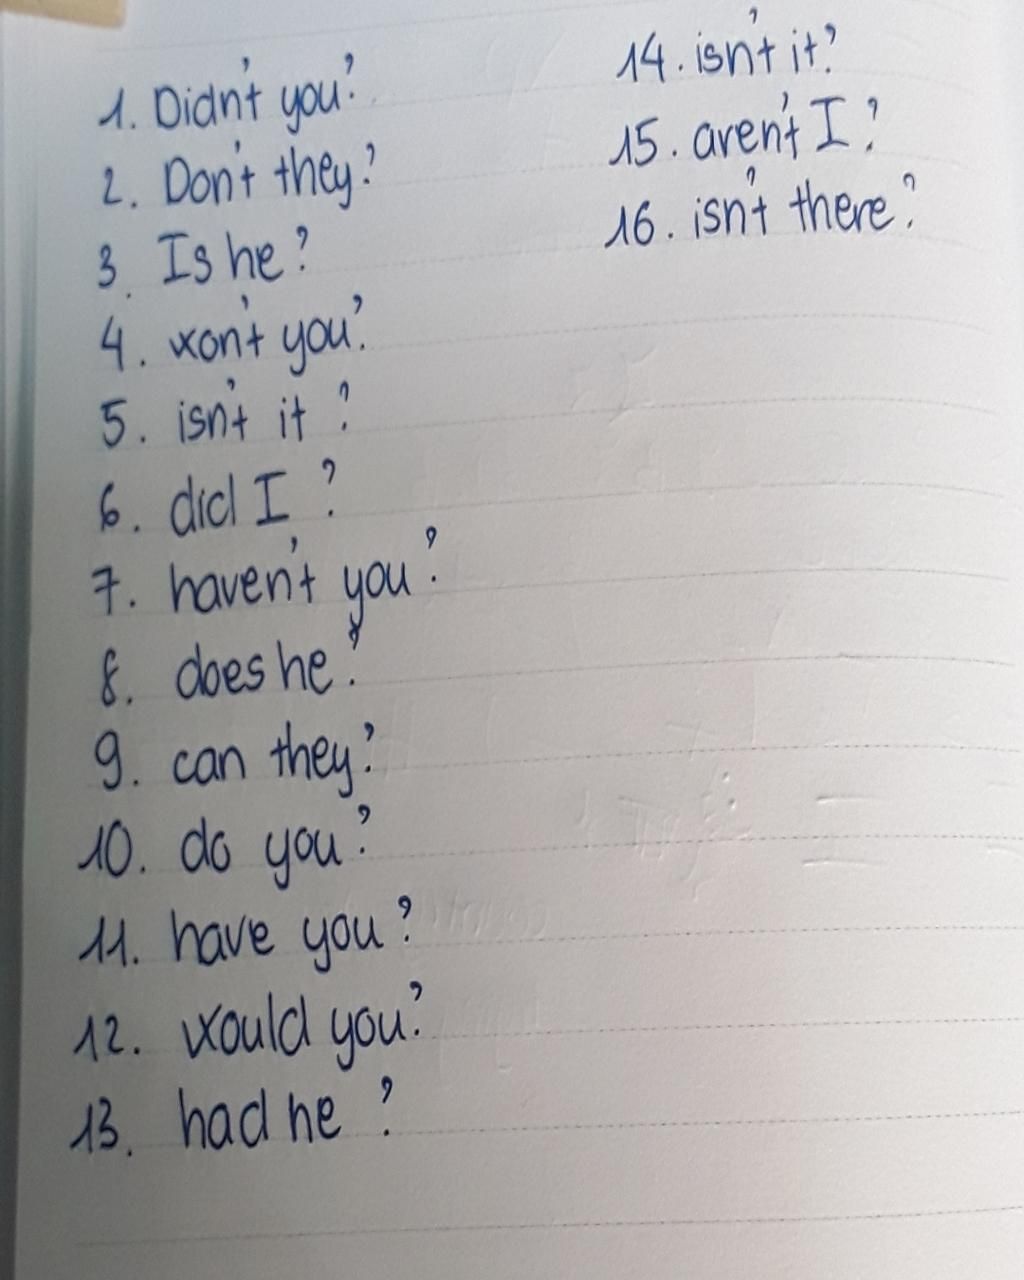 1. Didn't you?
2. Don't they?
3. Is he?
4. won't you?
5. isn't it?
6. did I?
7. haven't you?
8. does he?
9. can they?
10. do you?
11. have you?
12. would you?
13. had he?
14. isn't it?
15. aren't I?
16. isn't there?